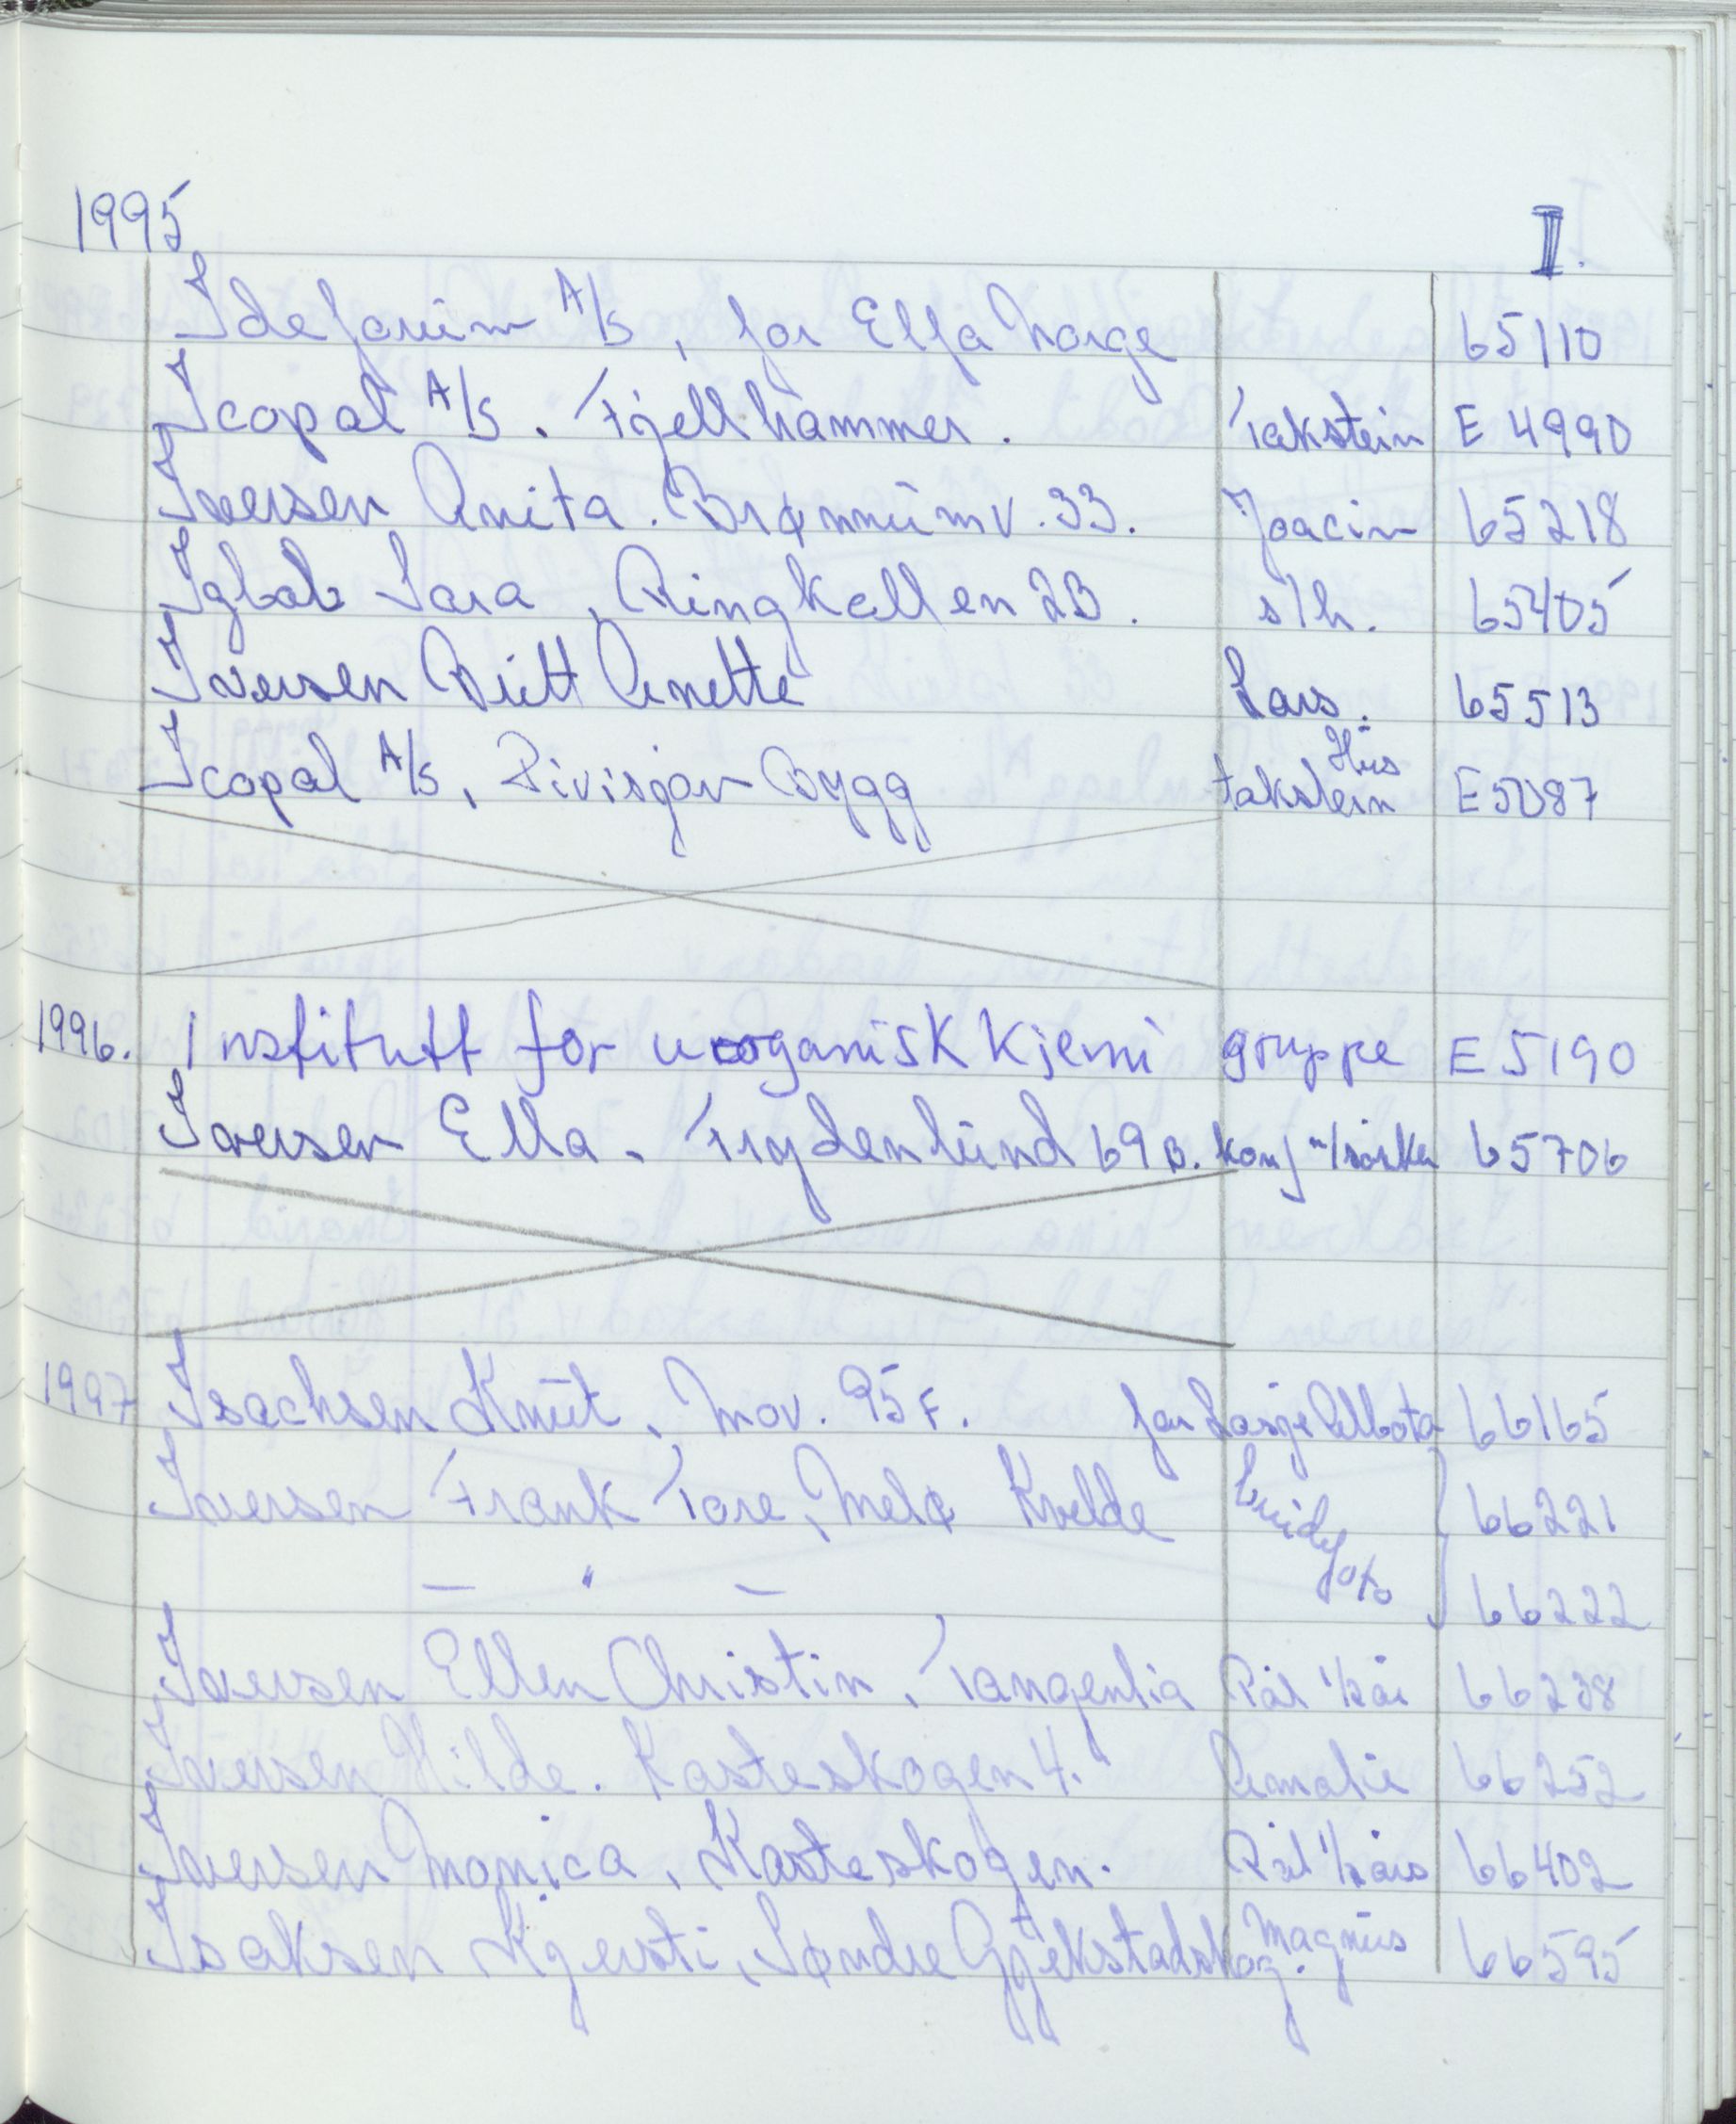 1995
I.
Ideforum A/S, for Elfa Norge 65110
Icopal A/S. Fjellhammer. Takstein E 4990
Iversen Anita. Brønnumv. 33. Joacim 65218
Iqbal Sara, Ringkollen 2B. s/h. 65405
Iversen Britt Anette Lars. 65513
Icopal A/S, Divisjon Bygg Hus takstein E 5087
1996. Institutt for uorganisk kjemi gruppe E 5190
Iversen Ella. Frydenlund 69 B. konf 65706
1997 Isachsen Knut, Mov. 95 F. for Lasje Abbota 66165
Iversen Frank Tore, Melø Kvelde foto 66221
— " — 66222
Iversen Ellen Christin, Tangenlia Pål 1/2 år 66238
Iversen Hilde. Kasteskogen 4. Amalie 66252
Iversen Monica, Kasteskogen. Pål 1/2 års 66402
Isaksen Kjersti, Søndre Gjekstadskog. Magnus 66595